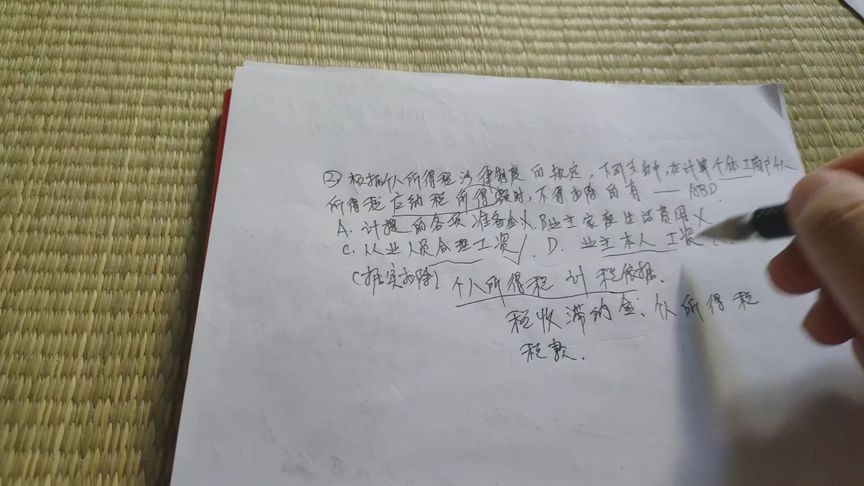 ② 根据个人所得税法律制度的规定，下列支出中，在计算个体工商户个人
所得税应纳税所得额时，不得扣除的有 — ABD.
A. 计提的各项准备金X. B业主家庭生活费用X
C. 从业人员合理工资√. D. 业主本人工资
(据实扣除) 个人所得税计税依据.
税收滞纳金、个人所得税
税款.